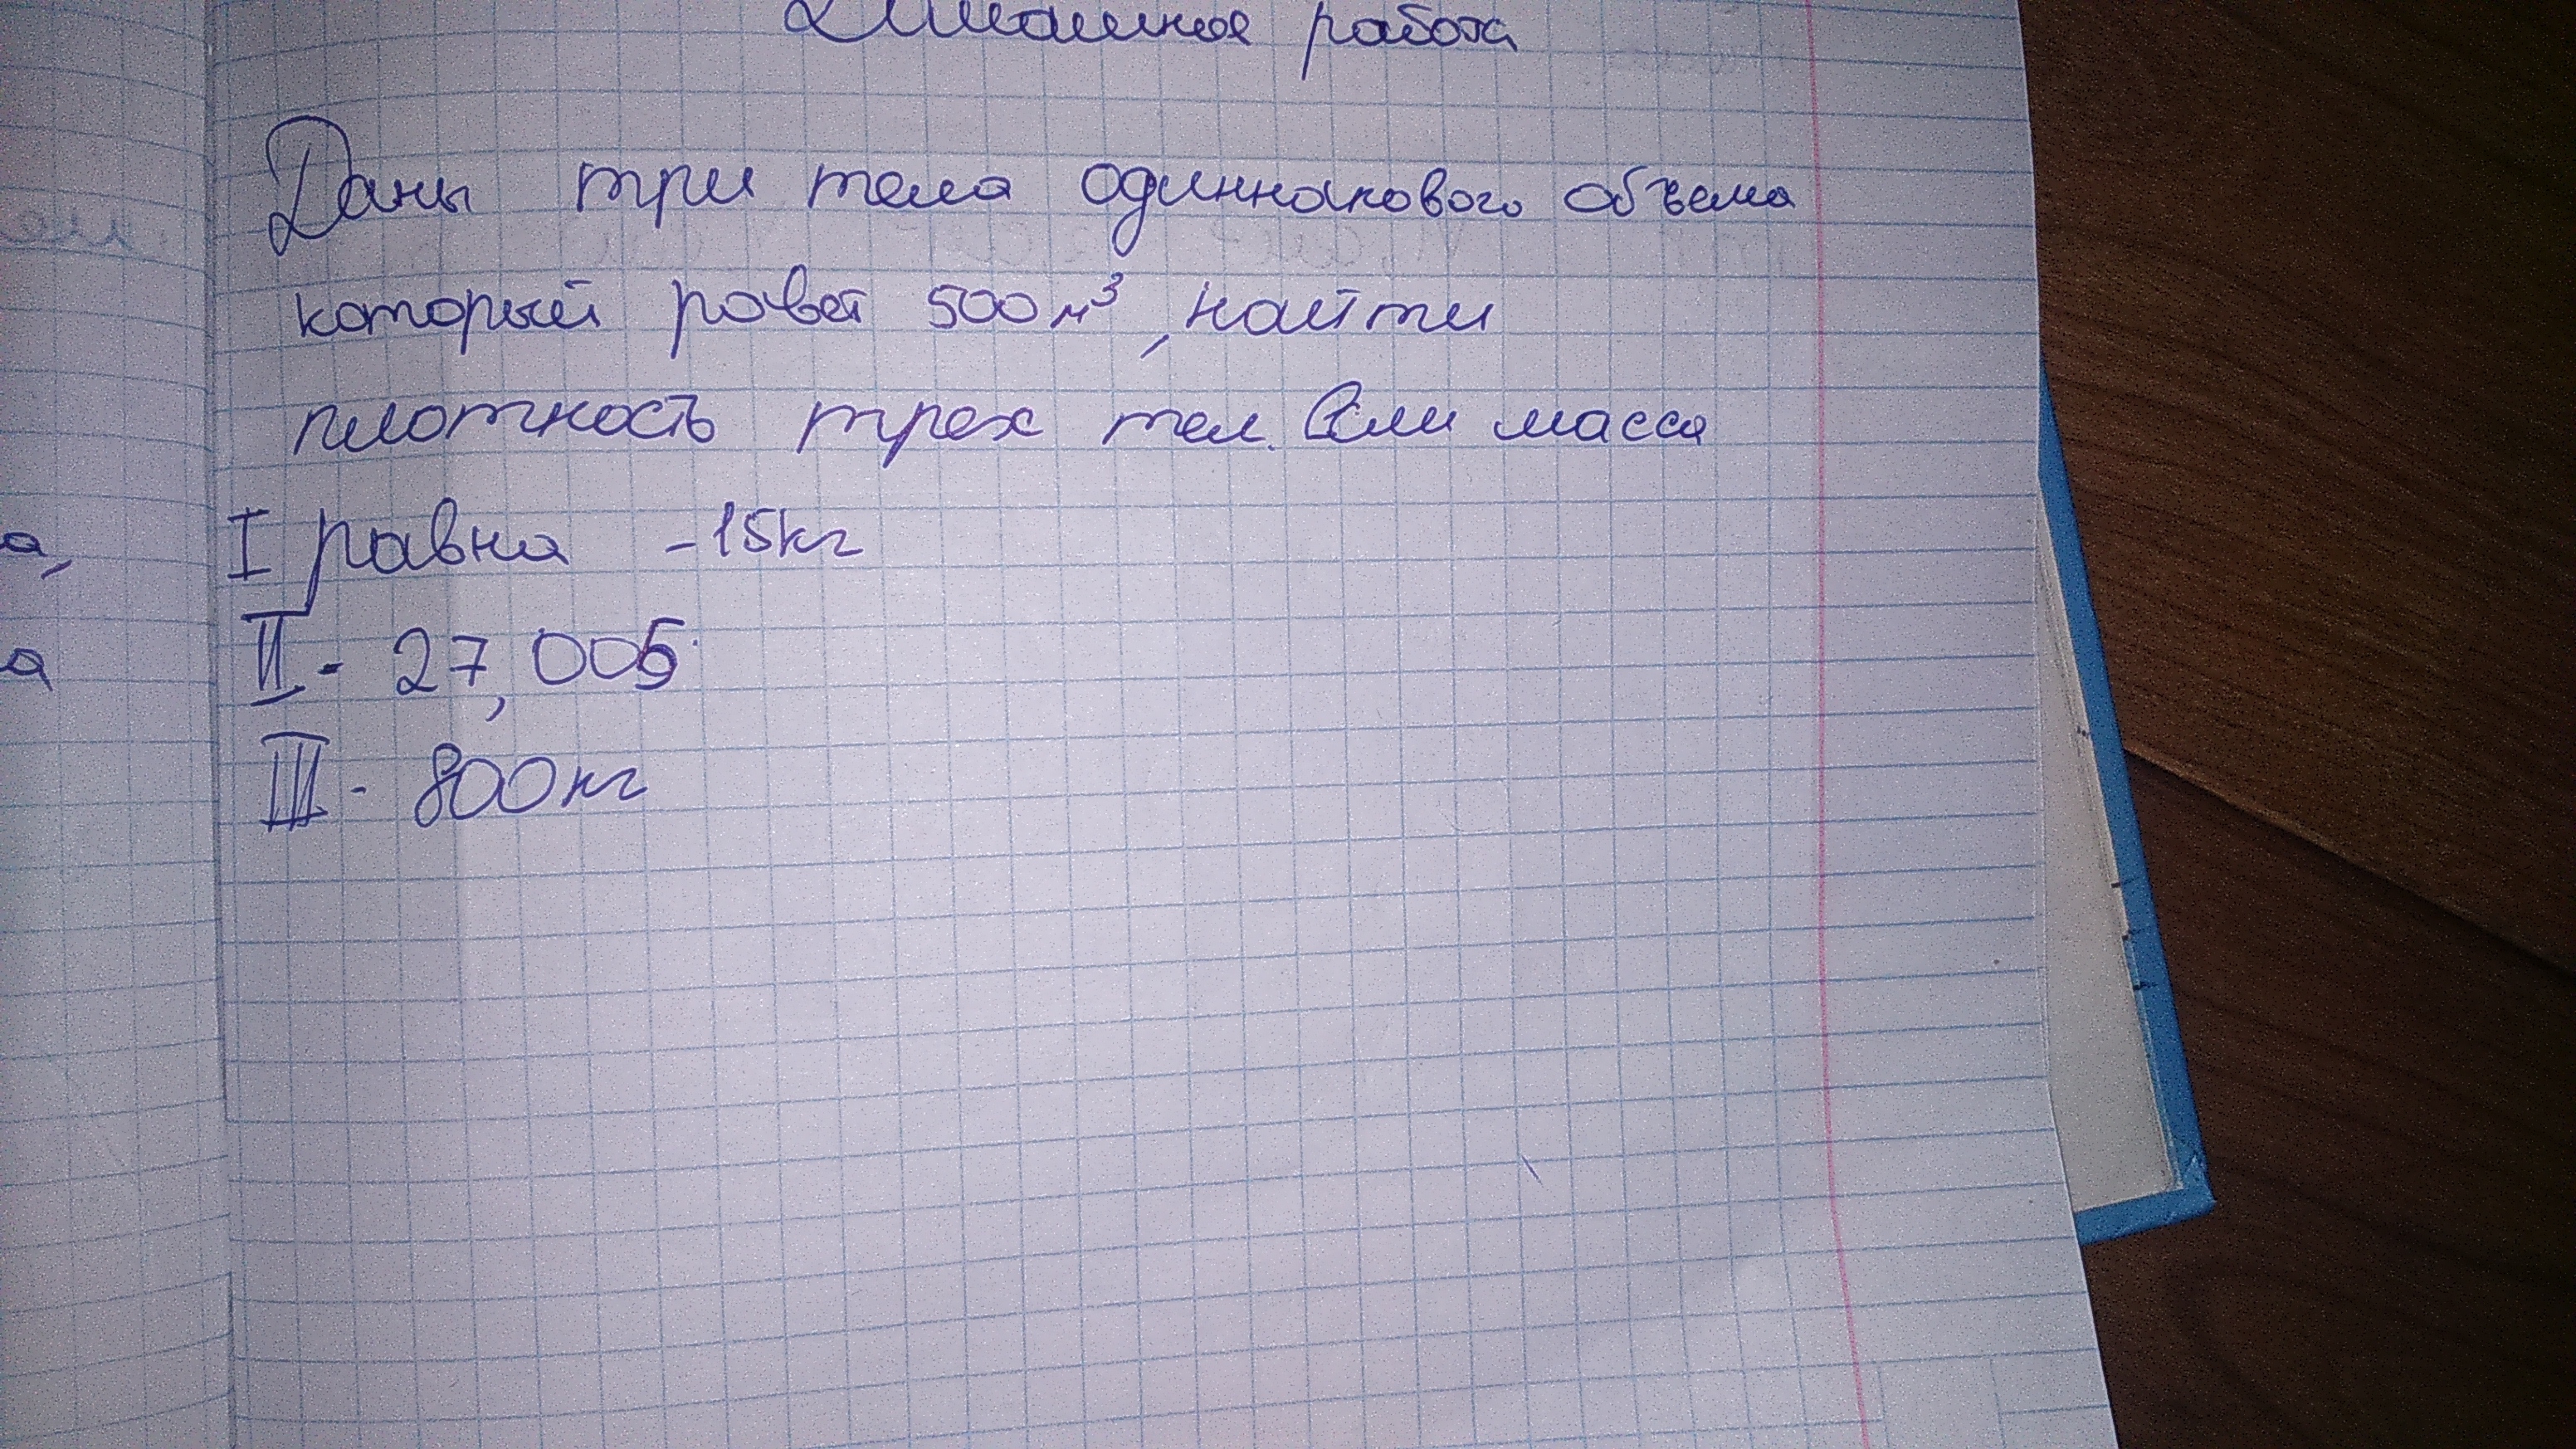 Домашнее работа
Даны три тела одиннакового объема
который равен 500м³, найти
плотность трех тел. Если масса
а, I равна - 15кг
а II - 27,005
III - 800кг